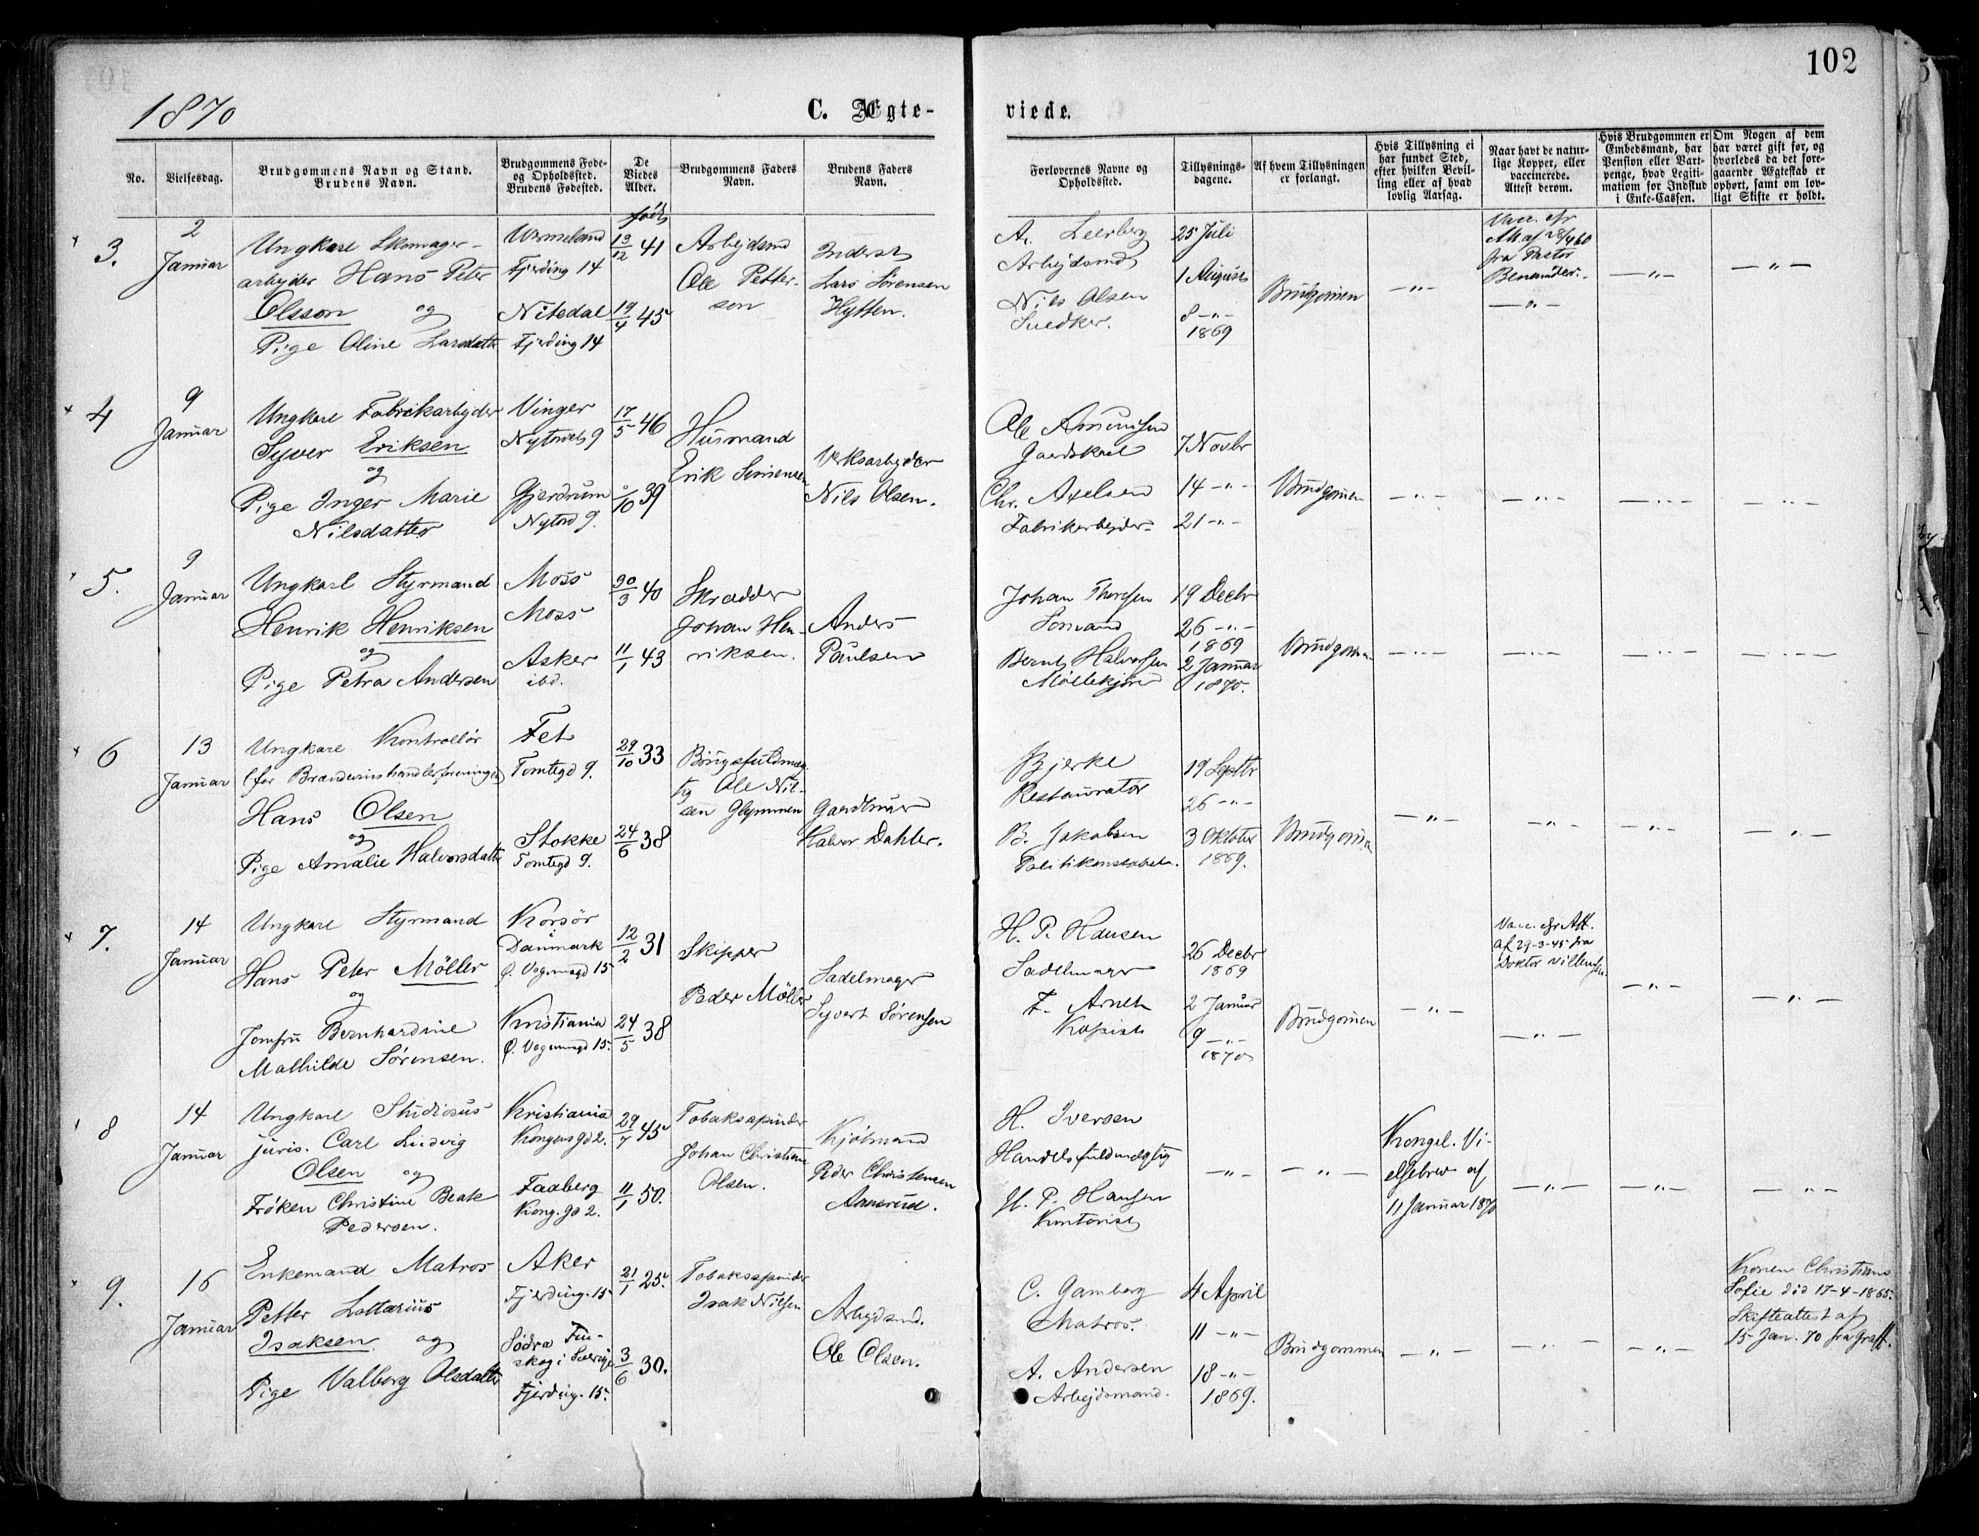 102
1870
C. Ægte-
viede.
No.
Vielsesdag.
Brudgommens Navn og Stand.
Brudens Navn.
Brudgommens Føde-
og Opholdssted.
Brudens Fødested.
De
Viedes
Alder.
Brudgommens Faders
Navn.
Brudens Faders
Navn.
Forlovernes Navne og
Opholdssted.
Tillysnings-
dagene.
Af hvem Tillysningen
er forlangt.
Hvis Tillysning ei
har fundet Sted,
efter hvilken Bevil-
ling eller af hvad
lovlig Aarsag.
Naar havt de natur-
lige Kopper, eller
vaccinerede.
Attest derom.
Hvis Brudgommen er
Embedsmand, har
Pension eller Vart-
penge, hvad Legiti-
matiom for Indskud
i Enke-Cassen.
Om Nogen af dem
har været gift før, og
hvorledes da det fore-
gaaende Ægteskab er
ophørt, samt om lov-
ligt Skifte er holdt.
født
3.
2
Januar
Ungkarl Skomager-
arbeyder Hans Peter
Olsson og
Pige Oline Larsdatter
Wermeland
Fjerding 14
Nitedal
Fjerding 14
13/12 41
19/4 45
Arbejdsmd
Ole Petter-
sen
Inderst
Lars Sørensen
Hytten.
A. Leerberg
Arbejdsmd
Nils Olsen
Snedker.
25 Juli
1 August
8 -"-
1869
Brudgommen
-"-
Vacc. efr
Att af 28/4 60
fra Pastor
Benander.
-"-
-"-
-"-
4
9
Januar
Ungkarl Fabrikarbeyder
Syver Eriksen
og
Pige Inger Marie
Nilsdatter
Vinger
Nytorvets 9
Gjerdrum
Nytord 9.
17/5 46
/10 39
Husmand
Erik Simensen
Verksarbeyder
Nils Olsen.
Ole Amundsen
Gaardskarl
Chr. Axelsend
Fabrikerbeyder
7 Novbr
14 -"-
21 -"-
Brudgommen
-"-
-"-
-"-
-"-
5.
9
Januar
Ungkarl Styrmand
Henrik Henriksen
og
Pige Petra Andersen
Moss
Moss
Asker
ibd.
30/3 40
11/1 43
Skrædder
Johan Hen-
riksen.
Anders
Paulsen
Johan Thoresen
Sømand
Bernt Halvorsen
Møllekjører
19 Decbr
26 -"-
1869
2 Januar
1870.
Brudgommen
-"-
-"-
-"-
-"-
6
13
Januar
Ungkarl Kontrollør
(for Brændevinshandlerforeningen)
Hans Olsen
og
Pige Amalie Halvorsdatter
Fet
Tomtegd 9.
Stokke
Tomtegd 9.
29/10 33
24/6 38
Ole Nil-
sen Glommen
Gaardbruger
Halvor Dahler.
Bjerke
Restauratør
B. Jakobsen
Politikonstabel.
19 Septbr
26 -"-
3 Oktober
1869.
Brudgommen
-"-
-"-
-"-
-"-
7.
14
Januar
Ungkarl Styrmand
Hans Peter Möller
og
Jomfru Bernhardine
Mathilde Sørensen.
Korsör
i
Danmark
Ø. Vognmagd 15
Kristiania
Ø. Vognmagd 15.
12/2 31
24/5 38
Skipper
Peder Möller
Sadelmager
Syvert Sørensen
H. P. Hansen
Sadelmager
F. Arneth
Kopist
26 Decbr
1869
2 Januar
9 -"-
1870
Brudgommen
-"-
Vacc. efr Att.
af 29-3-45 fra
Doktor
-"-
-"-
-"-
8
14
Januar
Ungkarl Studiosus
juris. Carl Ludvig
Olsen og
Frøken Christine Beate
Pedersen.
Kristiania
Kongens gd 2.
Faaberg
Kong. gd 2.
29/7 45
11/1 50.
Tobaksspinder
Johan Christian
Olsen.
Kjøbmand
Peder Christensen
Aanerud.
H. Iversen
Handelsfuldmægtig
H. P. Hansen
Kontorist
-"-
-"-
Kongel. Vi-
elsebrev af
11 Januar 1870
-"-
-"-
-"-
9.
16
Januar
Enkemand Matros
Petter Lottarius
Isaksen og
Pige Valborg Olsdatter
Aker
Fjerding. 15
Södra Fin-
skog i Sverige
Fjerding. 15.
21/1 25.
3/6 30.
Tobaksspinder
Isak Nilsen
Arbejdsmd.
Ole Olsen.
C. Gamberg
Matros.
A. Andersen
Arbejdsmand.
4 April
11 -"-
18 -"-
1869.
Brudgommen
-"-
-"-
-"-
Konen Christiane
Sofie død 17-4-1865.
Skifteattest af
15 Jan. 70 fra Graff.